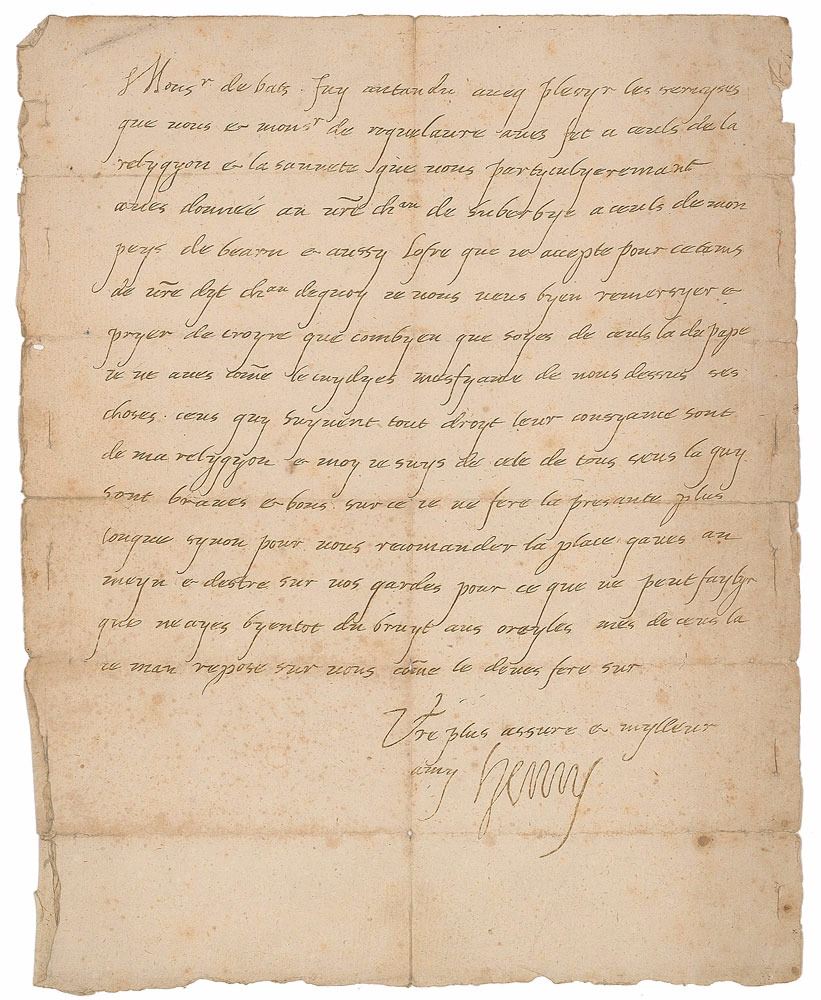 Monsr de bats . Jay antandu aveq plesyr les servyses
que vous & monsr de roquelaure aves fet a ceuls de la
relygyon & la sauvete que vous partyculyeremant
aves donnée an vre chau de suberbye a ceuls de mon
peys de bearn & aussy lofre que je accepte pour ce tams
de vre dyt chau de quoy je vous veus byen remersyer &
pryer de croyre que combyen que soyes de ceuls la du pape
je ne aves come le cuydyes mesfyance de vous dessus ses
choses . ceus quy suyvent tout droyt leur consyance sont
de ma relygyon & moy je suys de cele de tous ceus la quy
sont braves & bons . sur ce je ne fere la presante plus
longue synon pour vous recomander la place qaves an
meyn & destre sur vos gardes pour ce que ne peut faylyr
que ne ayes byentot du bruyt aus oreyles mes de ceus la
je man repose sur vous come le deves fere sur
Vre plus assure & mylleur
amy henry